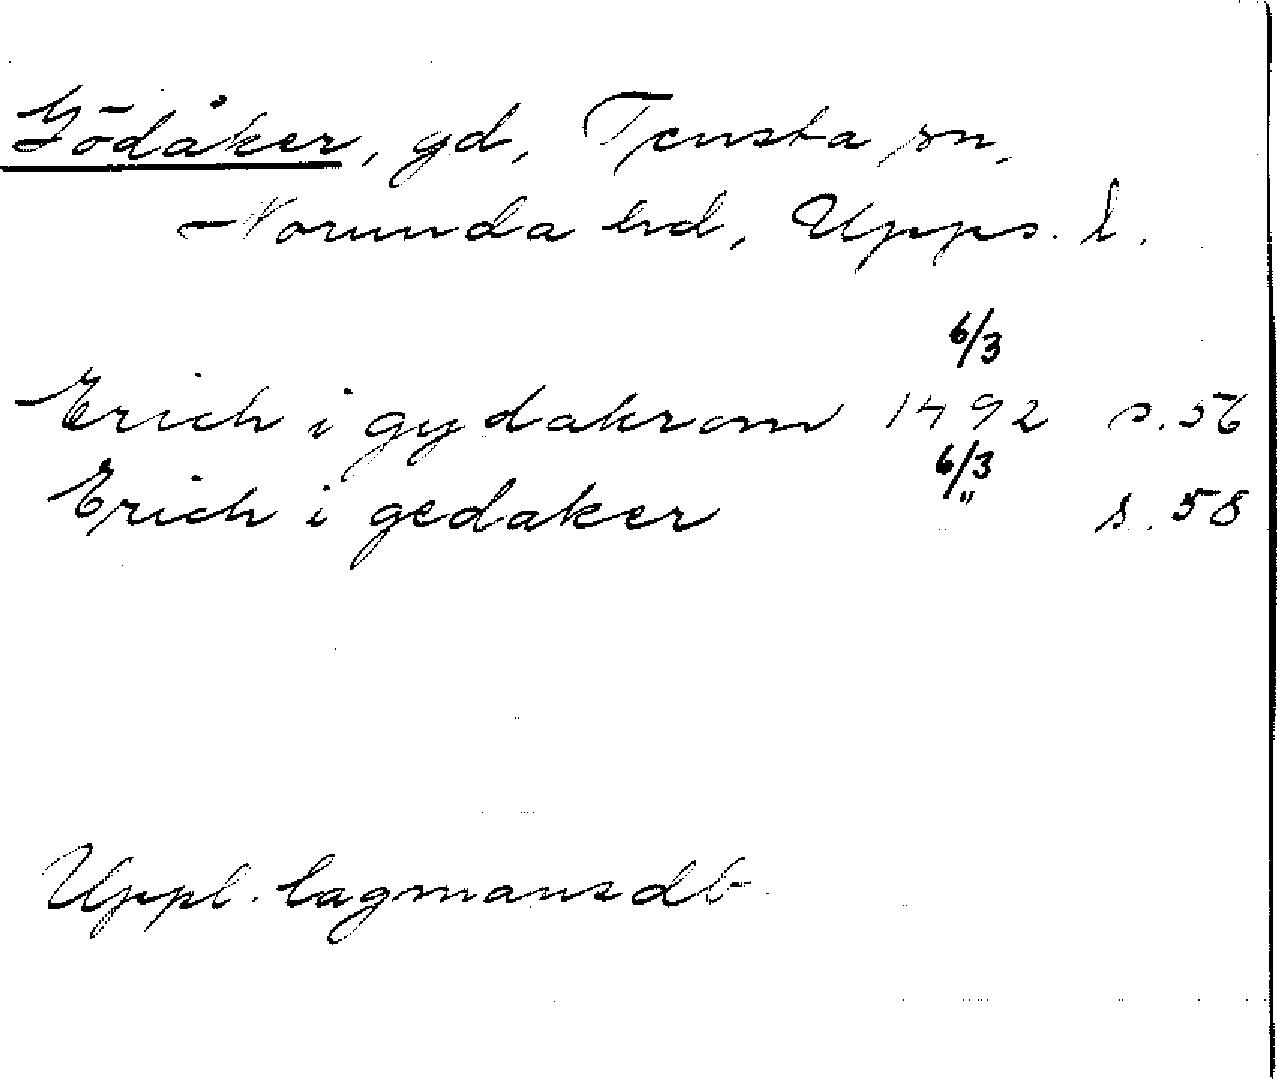 Gödåker, gd, Tensta sn,
Norunda hd, Upps. l.
6/3
Erich i gydakrom 1492 s. 56
6/3
Erich i gedaker " s. 58
Uppl. lagmansdb